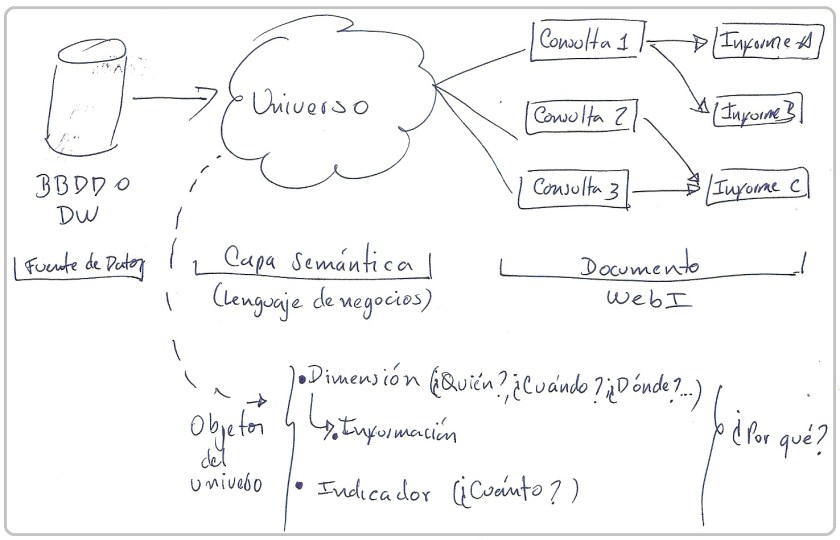 Universo
BBDD o
DW
Fuente de Datos
Capa Semántica
(Lenguaje de negocios)
Consulta 1
Consulta 2
Consulta 3
Informe A
Informe B
Informe C
Documento
WebI
Objetos
del
universo
• Dimensión (¿Quién?, ¿Cuándo?, ¿Dónde?...)
• Información
• Indicador (¿Cuánto?)
¿Por qué?